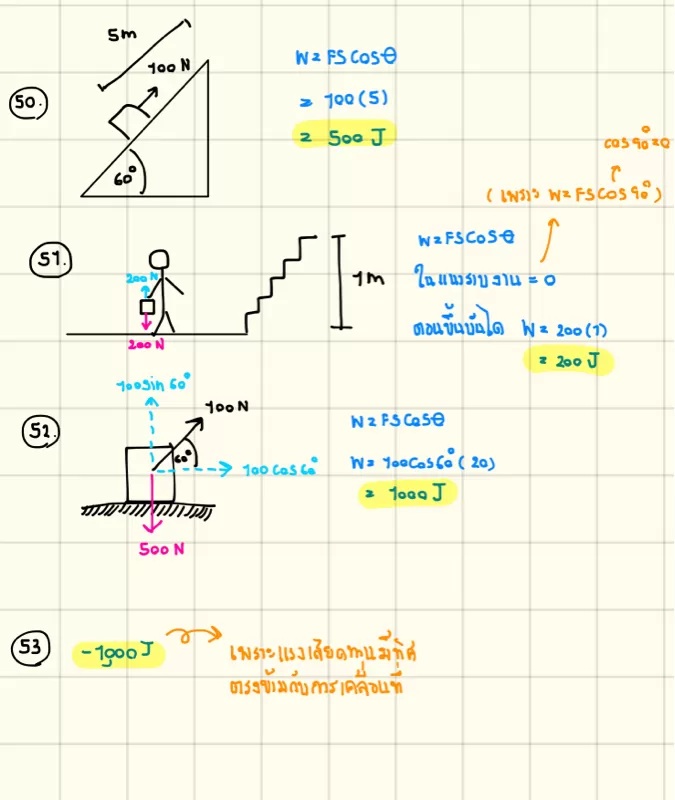 5m
100 N
50.
60°
W = FS cosθ
= 100 (5)
= 500 J
cos 90° = 0
(เพราะ W = FS cos 90°)
51.
200 N
200 N
1 m
W = FS cosθ
ในแนวราบงาน = 0
ตอนขึ้นบันได W = 200 (1)
= 200 J
52.
100 sin 60°
100 N
60°
100 cos 60°
500 N
W = FS cosθ
W = 100 cos 60° (20)
= 1000 J
53
-1,000 J
เพราะแรงเสียดทานมีทิศ
ตรงข้ามกับการเคลื่อนที่